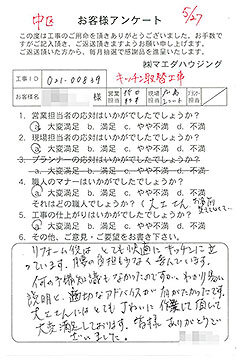 中区 お客様アンケート 5/27
この度は工事のご用命を頂きありがとうございました。お手数で
すがご記入頂き、ご返送頂きますようお願い申し上げます。
ご返送頂いた方から、毎月抽選で感謝品を進呈いたします。
㈱マエダハウジング
工事ID 021-00839 キッチン取替工事
お客様名 様 営業担当 現場担当
1. 営業担当者の応対はいかがでしたでしょうか?
a. 大変満足 b. 満足 c. やや不満 d. 不満
2. 現場担当者の応対はいかがでしたでしょうか?
a. 大変満足 b. 満足 c. やや不満 d. 不満
3. プランナーの応対はいかがでしたでしょうか?
a. 大変満足 b. 満足 c. やや不満 d. 不満
4. 職人のマナーはいかがでしたでしょうか?
a. 大変満足 b. 満足 c. やや不満 d. 不満
それはどの職人でしょうか?(大工さん
5. 工事の仕上がりはいかがでしたでしょうか?
a. 大変満足 b. 満足 c. やや不満 d. 不満
6. その他、ご意見・ご要望をお書き下さい。
リフォーム後は、とても快適にキッチンに立
っています。腰の負担も少なく喜んでいます。
何の予備知識もなかったのですが、わかり易い
説明と、適切なアドバイスが有がたかったです。
大工さんにはとても丁ねいに作業して頂いて
大変満足しております。皆様ありがとうご
ざいました。